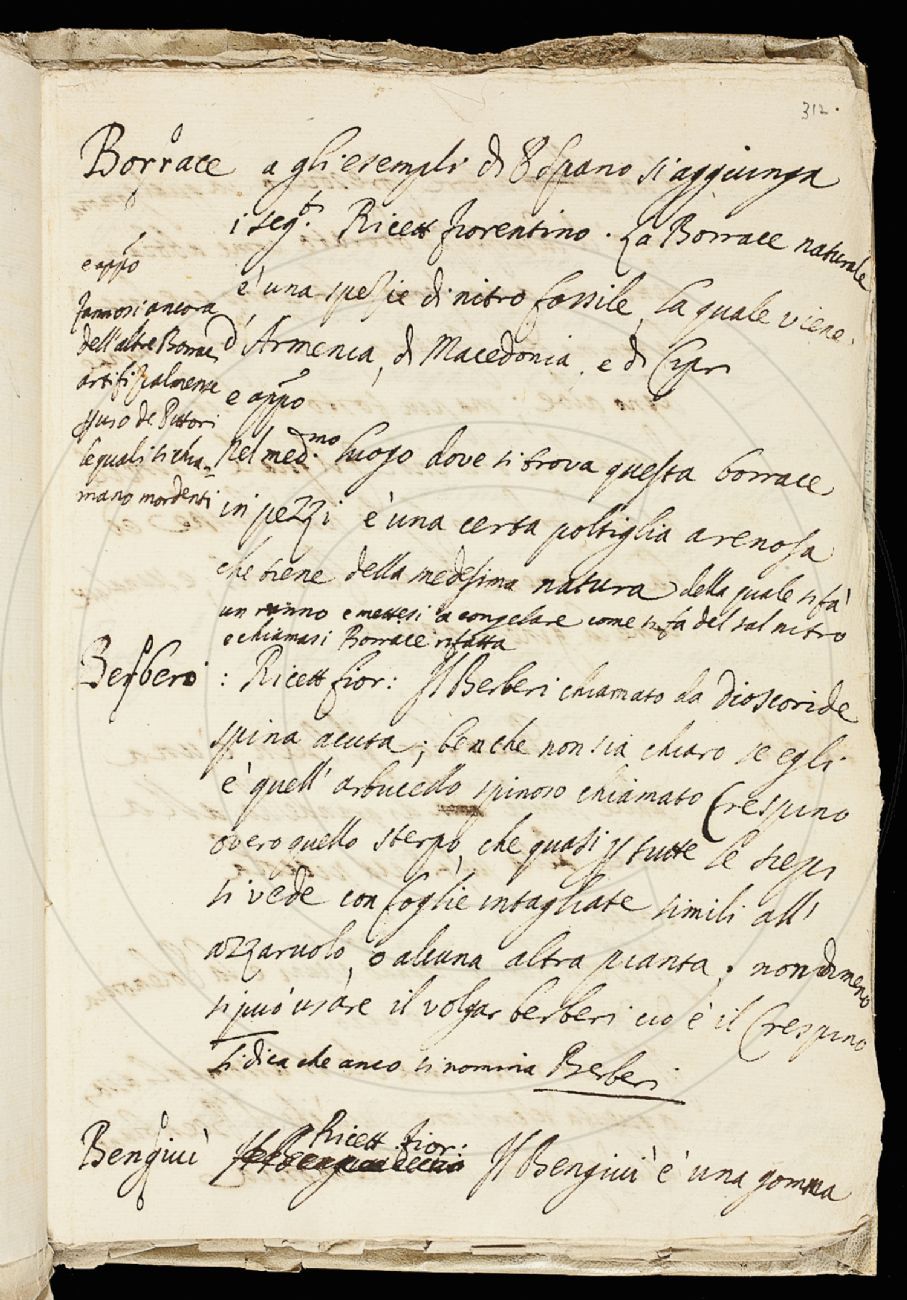 312.
Borrace a gli esempli di si aggiunga
i seg.ti Ricett fiorentino. La Borrace naturale
è una spezie di nitro fossile, la quale viene
d'Armenia, di Macedonia, e di Cipri
e app̃o
Nel med.mo luogo dove si trova questa borrace
in pezzi è una certa poltiglia arenosa
che tiene della medesima natura, della quale si fà
un ranno e mettesi a congelare come si fà del sal nitro
e chiamasi Borrace rifatta
e app̃o
fannosi ancora
dell'altre Borraci
artifizialmente
uso de Pittori
le quali si chia-
mano mordenti
Berberi : Ricett fior: Il Berberi chiamato da Dioscoride
spina acuta; benche non sia chiaro se egli
è quell' arbuscello spinoso chiamato Crespino
overo quello sterpo, che quasi p tutte le siepi
si vede con foglie intagliate simili all'
azzaruolo, o alcuna altra pianta; nondimeno
si può usare il volgar berberi cio è il Crespino
si dica che anco si nomina Berberi
Bengiuì Ricett. fior: Il Bengiuì è una gomma